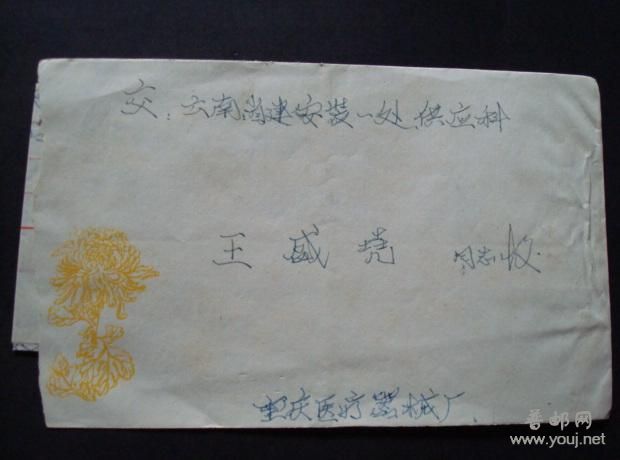 交：云南省建安装一处供应科
王威尧 同志收
重庆医疗器械厂
普邮网
www.youj.net